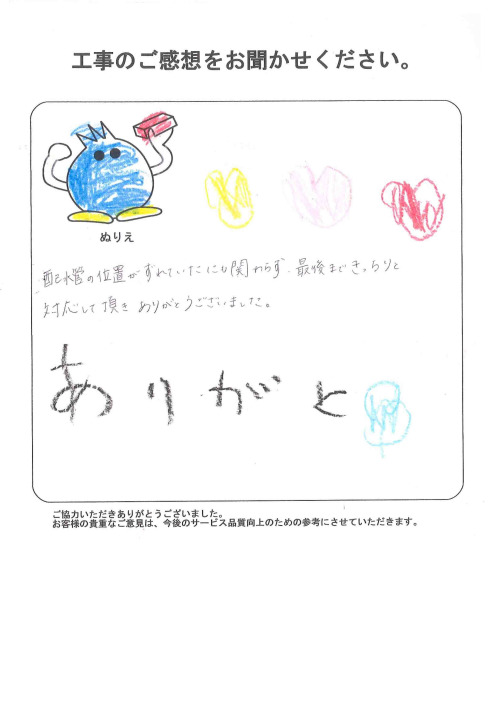 工事のご感想をお聞かせください。
ぬりえ
配水管の位置がずれていたにも関わらず、最後まできっちりと
対応して頂きありがとうございました。
ありがと
ご協力いただきありがとうございました。
お客様の貴重なご意見は、今後のサービス品質向上のための参考にさせていただきます。